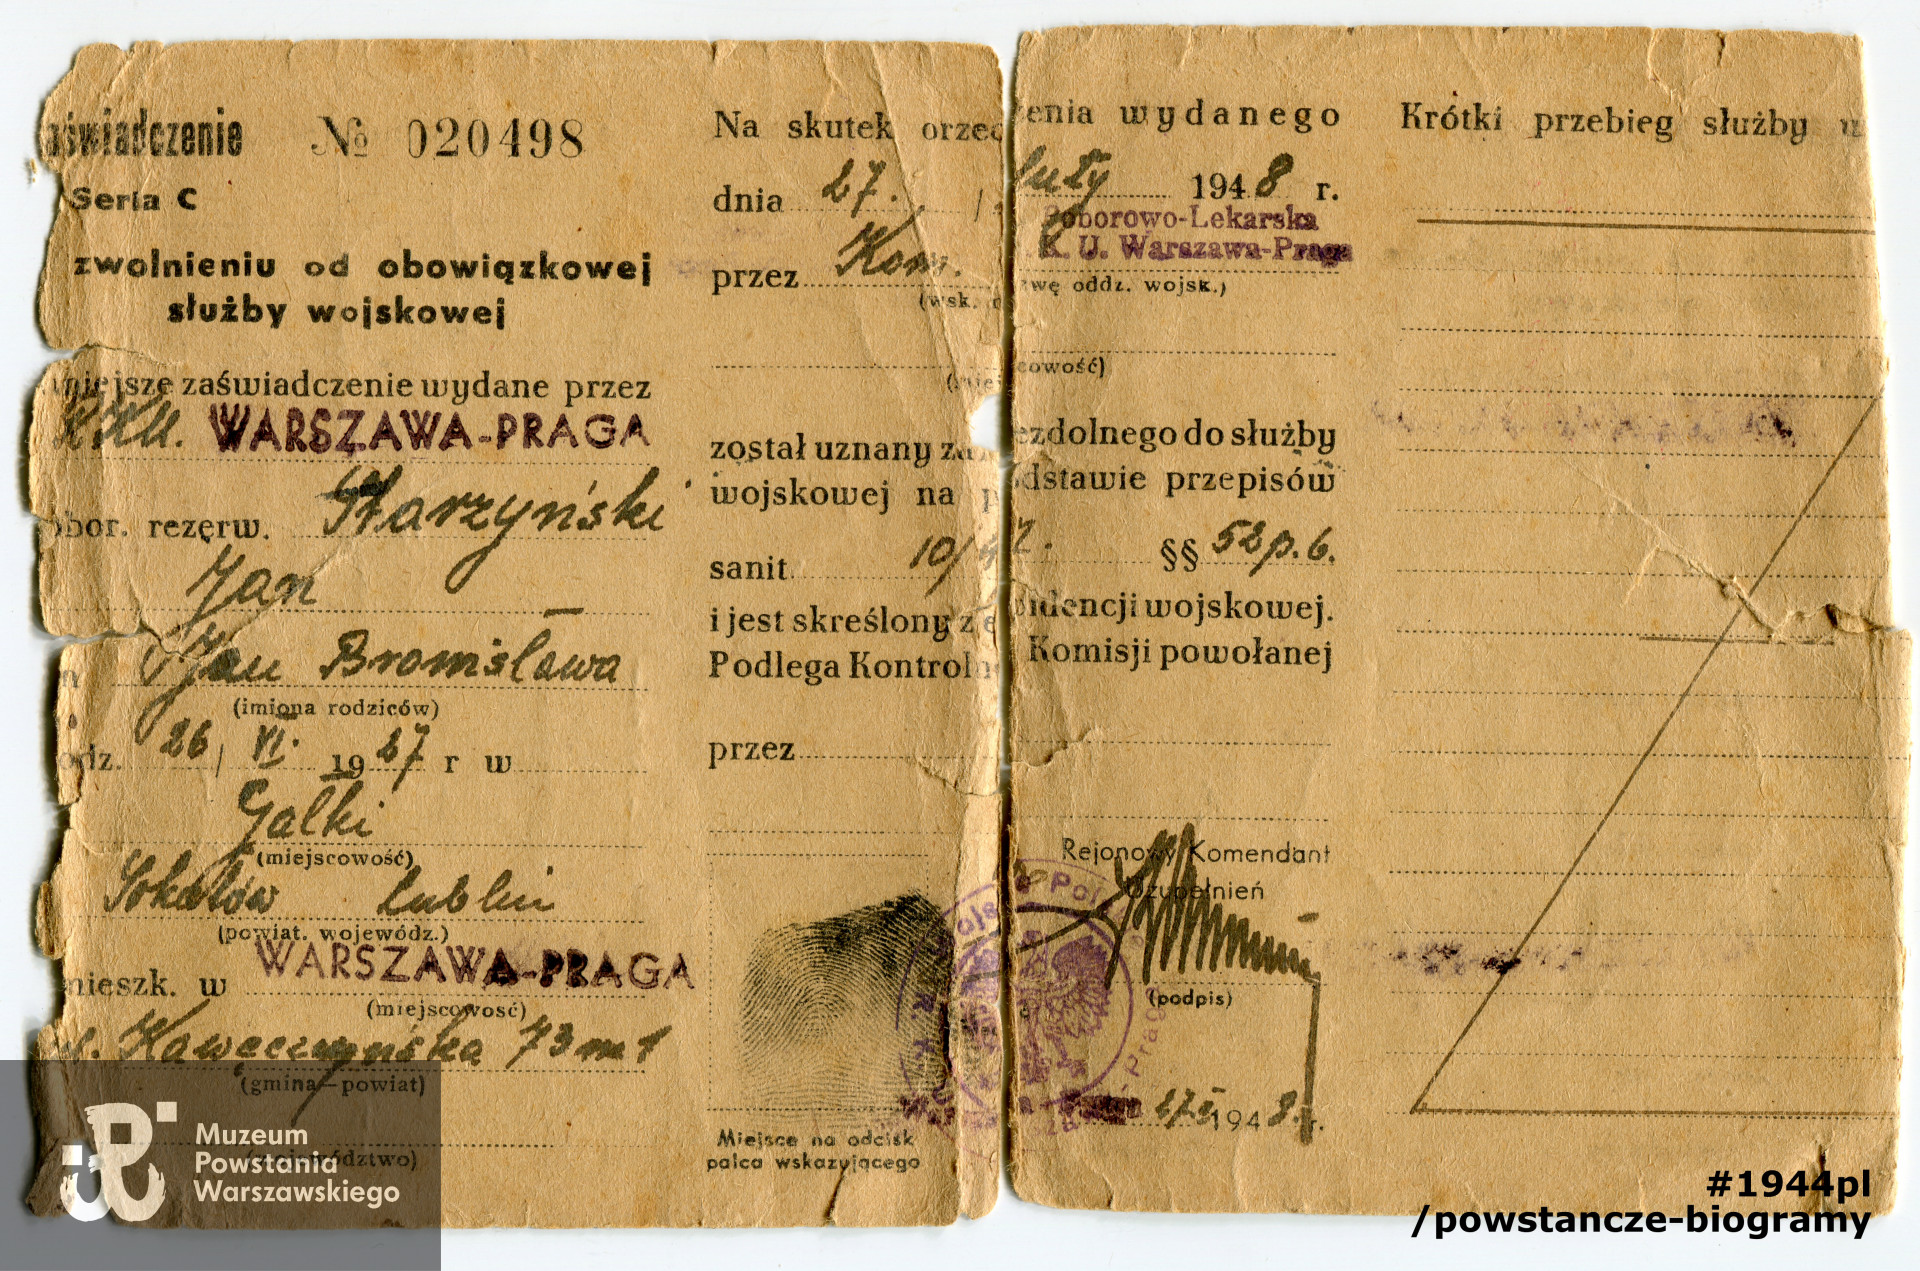 aświadczenie № 020498
Seria C
zwolnieniu od obowiązkowej
służby wojskowej
niejsze zaświadczenie wydane przez
R.K.U. WARSZAWA-PRAGA
obor. rezerw. Starzyński
Jan
Jan Bronisława
(imiona rodziców)
odz. 26/ VI. 1927 r w
Gałki
(miejscowość)
Sokołów Lublin
(powiat. wojewódz.)
mieszk. w WARSZAWA-PRAGA
(miejscowość)
ul. Kawęczyńska 73 m 1
(gmina—powiat)
(województwo)
Na skutek orzeczenia wydanego
dnia 27. luty 1948 r.
przez Kom. Poborowo-Lekarska
K. U. Warszawa-Praga
(wsk. nazwę oddz. wojsk.)
(miejscowość)
został uznany za niezdolnego do służby
wojskowej na podstawie przepisów
sanit. 10/ §§ 52 p. 6.
i jest skreślony z ewidencji wojskowej.
Podlega Kontrolnej Komisji powołanej
przez
Rejonowy Komendant
Uzupełnień
(podpis)
27 1948 r.
Miejsce na odcisk
palca wskazującego
Krótki przebieg służby w
Muzeum
Powstania
Warszawskiego
#1944pl
/powstancze-biogramy